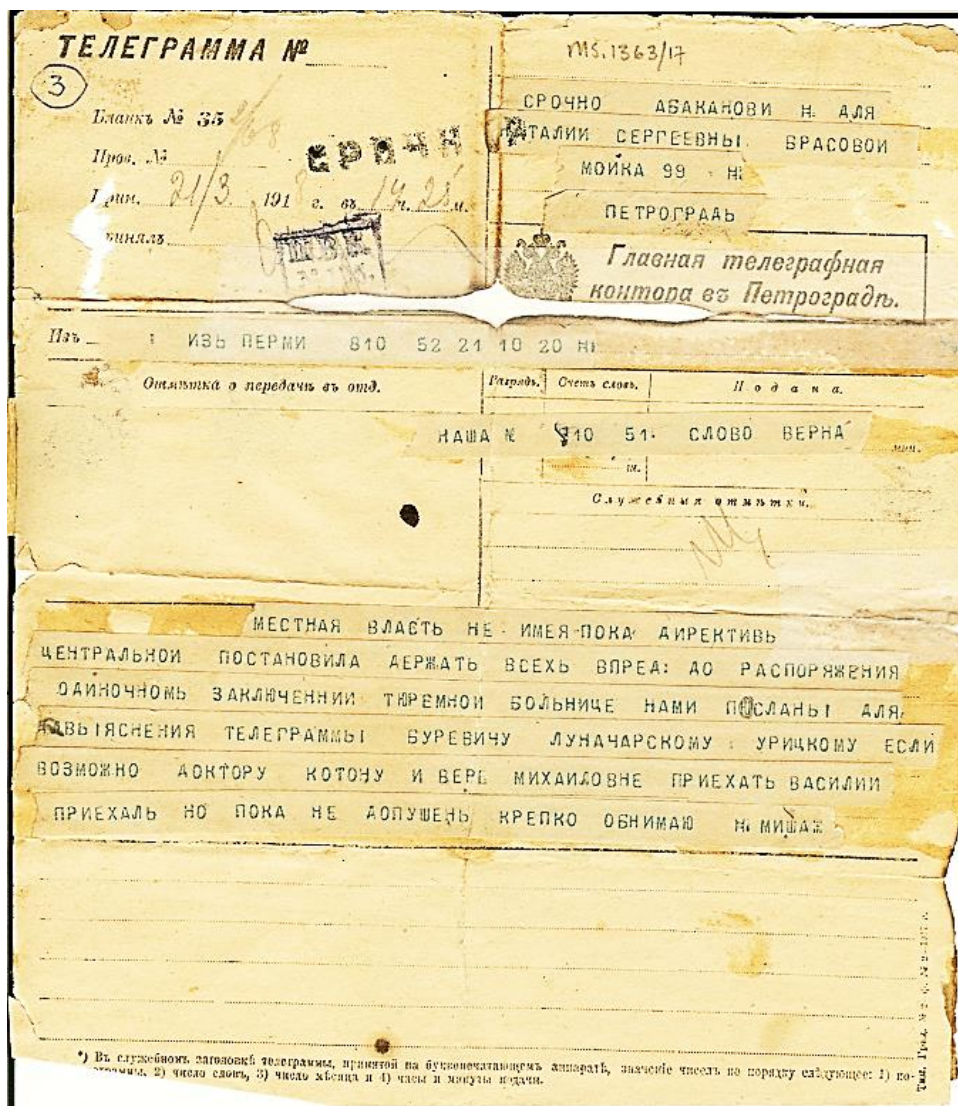 ТЕЛЕГРАММА №
MS.1363/17
3
Бланкъ № 35
Пров. №
СРОЧН
21/3 1918 г. въ 14 ч. 25 м.
СРОЧНО АБАКАНОВИ Н. ДЛЯ
НАТАЛИИ СЕРГЕЕВНЫ БРАСОВОЙ
МОЙКА 99 Н
ПЕТРОГРАДЬ
Главная телеграфная
контора въ Петроградѣ.
Изъ ИЗЬ ПЕРМИ 810 52 21 10 20 Н
Отмѣтка о передачѣ въ отд.
Разрядъ. Счетъ словъ. Подана.
НАША N 810 51. СЛОВО ВЕРНА
мин.
Служебныя отмѣтки.
МЕСТНАЯ ВЛАСТЬ НЕ ИМЕЯ ПОКА ДИРЕКТИВЬ
ЦЕНТРАЛЬНОЙ ПОСТАНОВИЛА ДЕРЖАТЬ ВСЕХЬ ВПРЕД: ДО РАСПОРЯЖЕНИЯ
ОДИНОЧНОМЬ ЗАКЛЮЧЕННИИ ТЮРЕМНОЙ БОЛЬНИЦЕ НАМИ ПОСЛАНЫ ДЛЯ
ВЫЯСНЕНИЯ ТЕЛЕГРАММЫ БУРЕВИЧУ ЛУНАЧАРСКОМУ : УРИЦКОМУ ЕСЛИ
ВОЗМОЖНО ДОКТОРУ КОТОНУ И ВЕРЕ МИХАИЛОВНЕ ПРИЕХАТЬ ВАСИЛИИ
ПРИЕХАЛЬ НО ПОКА НЕ ДОПУШЕНЬ КРЕПКО ОБНИМАЮ Н МИША
*) Въ служебномъ заголовкѣ телеграммы, принятой на буквопечатающемъ аппаратѣ, значеніе чиселъ по порядку слѣдующее: 1)
2) число словъ, 3) число мѣсяца и 4) часы и минуты подачи.